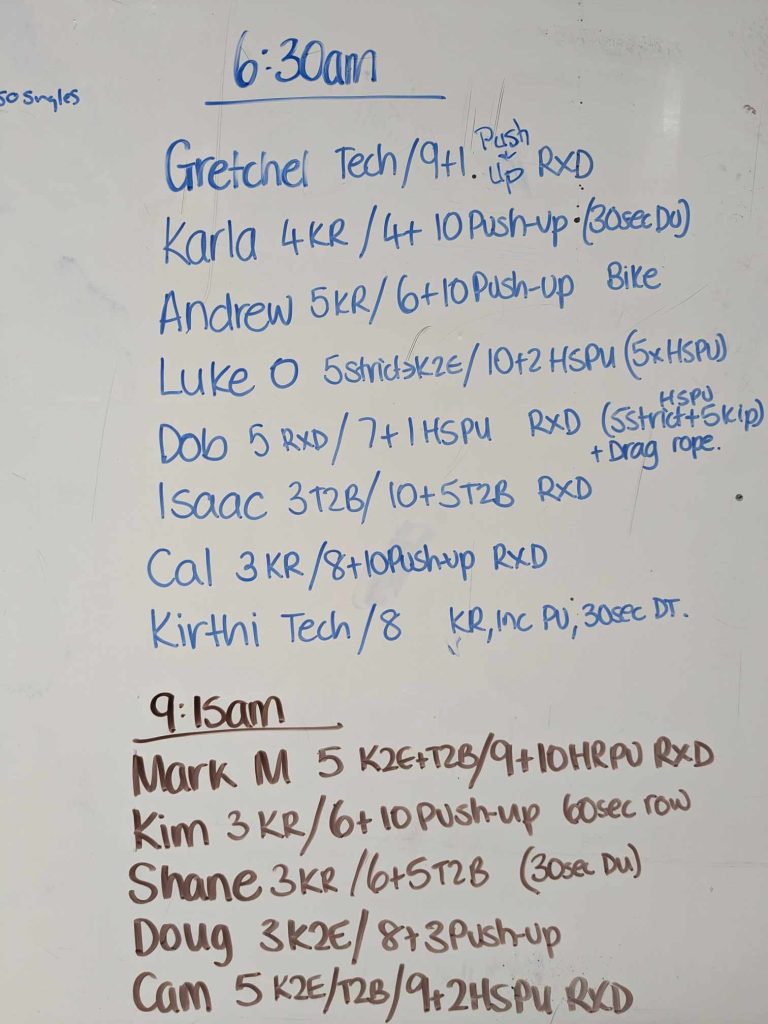 6:30am
50 Singles
Gretchel Tech/9+1 Push Up RXD
Karla 4KR/4+10Push-up (30sec DU)
Andrew 5KR/6+10Push-up Bike
Luke O 5strict K2E/10+2HSPU (5xHSPU)
Dob 5 RXD/7+1HSPU RXD (5strict+5kip) HSPU
+Drag rope.
Isaac 3T2B/10+5T2B RXD
Cal 3KR/8+10Push-up RXD
Kirthi Tech/8 KR, Inc PU, 30sec DT.
9:15am
Mark M 5 K2E+T2B/9+10HRPU RXD
Kim 3KR/6+10Push-up 60sec row
Shane 3KR/6+5T2B (30sec DU)
Doug 3K2E/8+3Push-up
Cam 5 K2E/T2B/9+2HSPU RXD